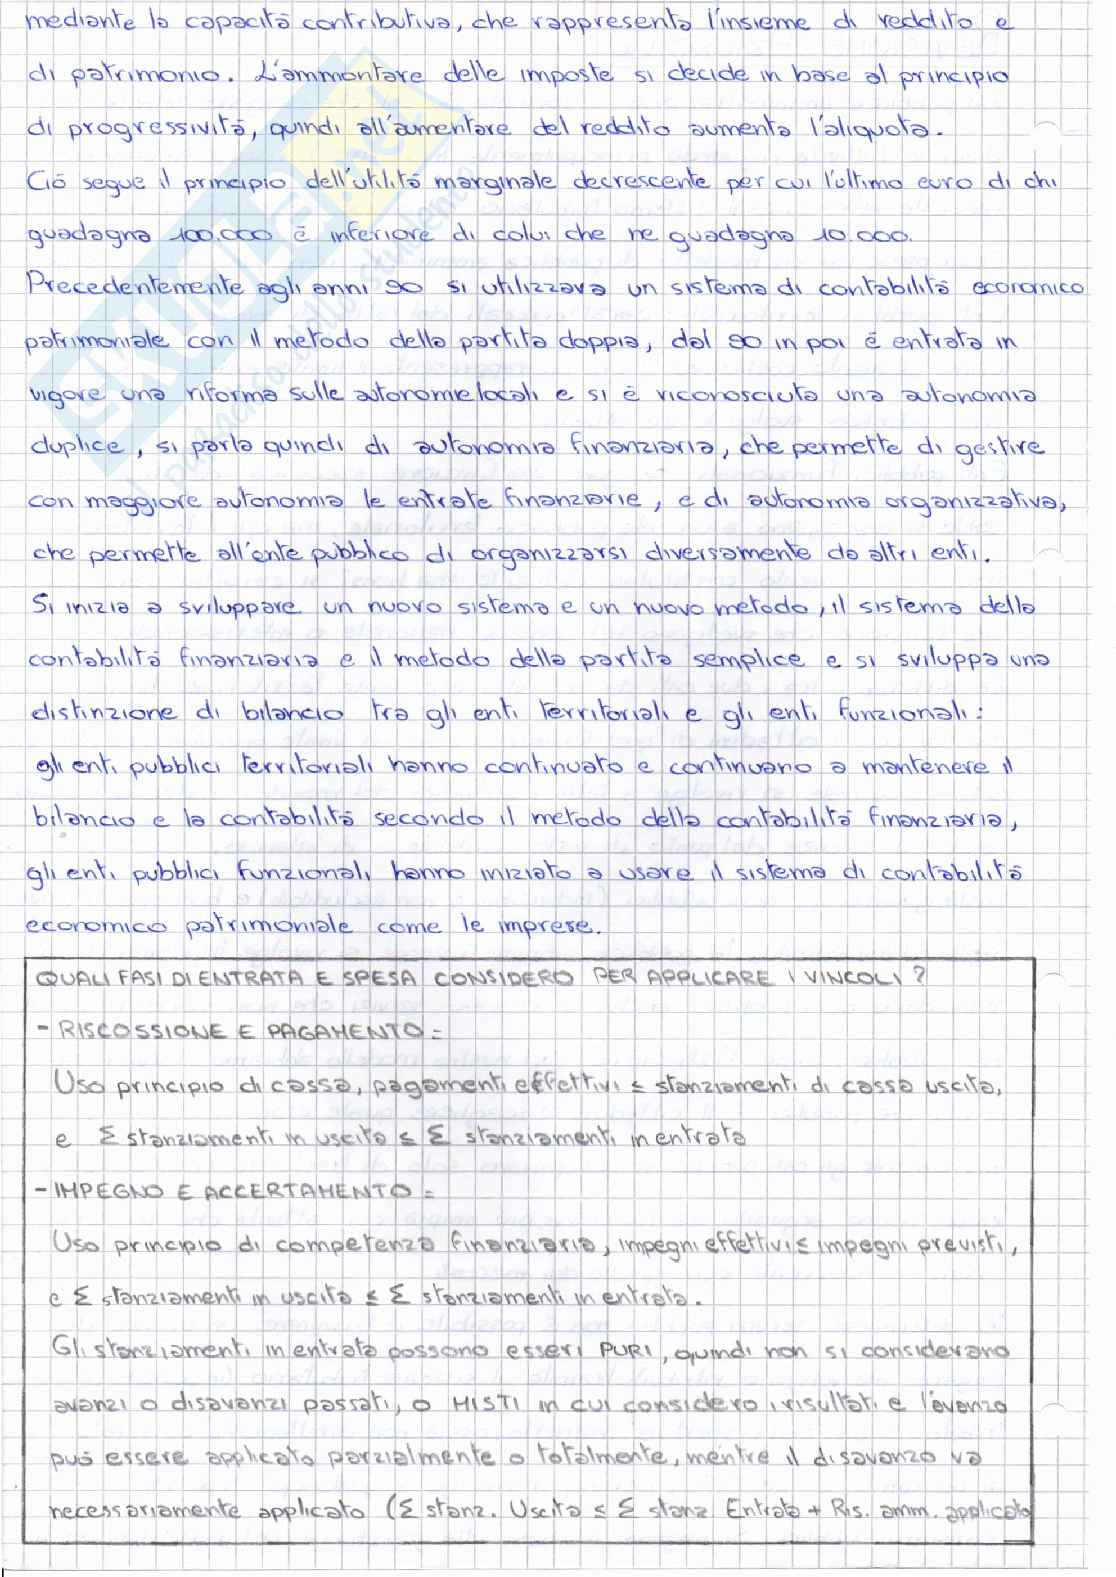 mediante la capacitá contributiva, che rappresenta l'insieme di reddito e
di patrimonio. L'ammontare delle imposte si decide in base al principio
di progressivitá, quindi all'aumentare del reddito aumenta l'aliquota.
Ció segue il principio dell'utilitá marginale decrescente per cui l'ultimo euro di chi
guadagna 100.000 é inferiore di colui che ne guadagna 10.000.
Precedentemente agli anni 90 si utilizzava un sistema di contabilitá economico
patrimoniale con il metodo della partita doppia, dal 90 in poi é entrata in
vigore una riforma sulle autonomie locali e si é riconosciuta una autonomia
duplice, si parla quindi di autonomia finanziaria, che permette di gestire
con maggiore autonomia le entrate finanziarie, e di autonomia organizzativa,
che permette all'ente pubblico di organizzarsi diversamente da altri enti.
Si inizia a sviluppare un nuovo sistema e un nuovo metodo, il sistema della
contabilitá finanziaria e il metodo della partita semplice e si sviluppa una
distinzione di bilancio tra gli enti territoriali e gli enti funzionali:
gli enti pubblici territoriali hanno continuato e continuano a mantenere il
bilancio e la contabilitá secondo il metodo della contabilitá finanziaria,
gli enti pubblici funzionali hanno iniziato a usare il sistema di contabilitá
economico patrimoniale come le imprese.
QUALI FASI DI ENTRATA E SPESA CONSIDERO PER APPLICARE I VINCOLI?
- RISCOSSIONE E PAGAMENTO =
Uso principio di cassa, pagamenti effettivi ≤ stanziamenti di cassa uscita,
e Σ stanziamenti in uscita ≤ Σ stanziamenti in entrata
- IMPEGNO E ACCERTAMENTO =
Uso principio di competenza finanziaria, impegni effettivi ≤ impegni previsti,
e Σ stanziamenti in uscita ≤ Σ stanziamenti in entrata.
Gli stanziamenti in entrata possono esseri PURI, quindi non si considerano
avanzi o disavanzi passati, o MISTI in cui considero i risultati e l'avanzo
puó essere applicato parzialmente o totalmente, mentre il disavanzo va
necessariamente applicato (Σ stanz. Uscita ≤ Σ stanz Entrata + Ris. amm. applicato